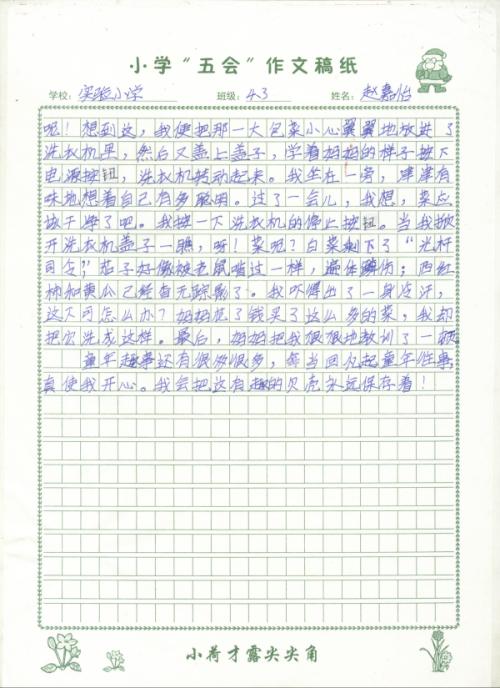 小学“五会”作文稿纸
学校：实验小学 班级：4.3 姓名：赵嘉怡
呢！想到这，我便把那一大包菜小心翼翼地放进了
洗衣机里，然后又盖上盖子，学着妈妈的样子按下
电源按钮，洗衣机转动起来。我坐在一旁，津津有
味地想着自己有多聪明。过了一会儿，我想，菜应
该干净了吧。我按一下洗衣机的停止按钮。当我掀
开洗衣机盖子一瞧，呀！菜呢？白菜剩下了“光杆
司令”；茄子好像被老鼠啃过一样，遍体鳞伤；西红
柿和黄瓜已经杳无踪影了。我吓得出了一身冷汗，
这下可怎么办？妈妈花了钱买了这么多的菜，我却
把它洗成这样。最后，妈妈把我狠狠地教训了一顿。
童年趣事还有很多很多，每当回忆起童年往事，
真使我开心。我会把这有趣的贝壳永远保存着！
小荷才露尖尖角